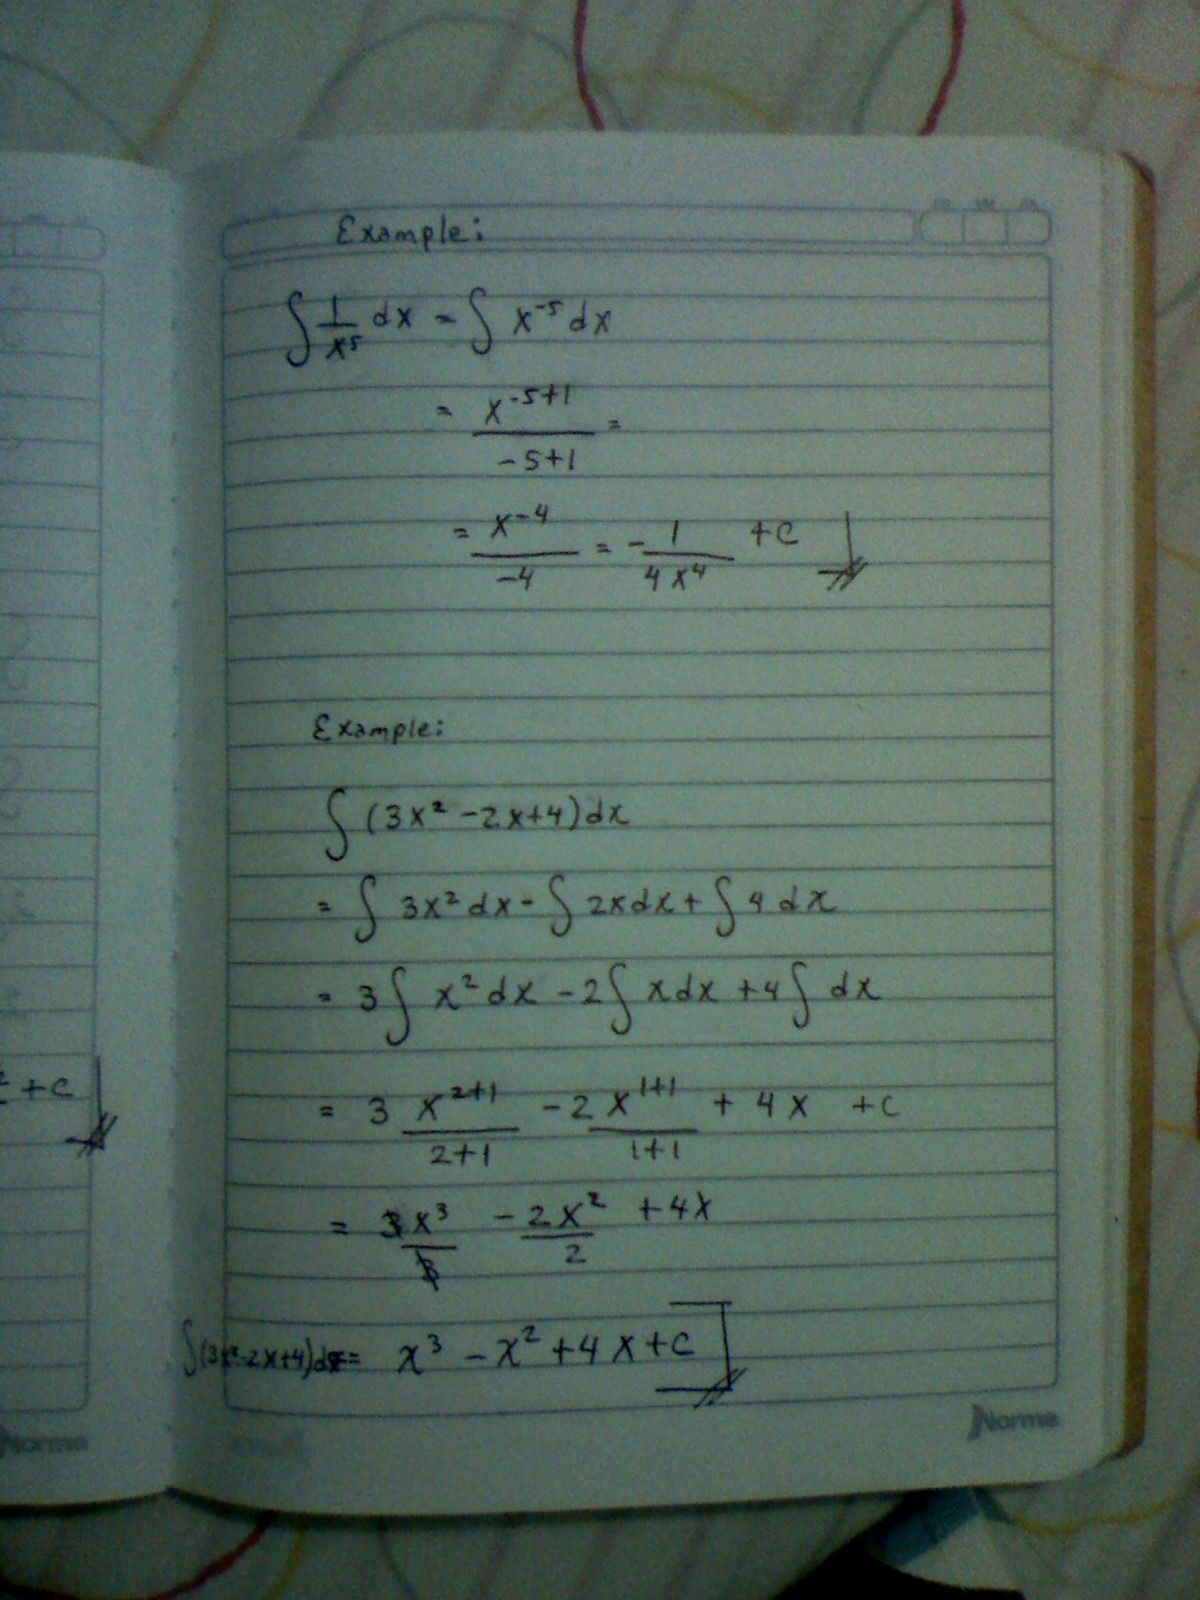 Example:
∫ 1/x⁵ dx = ∫ x⁻⁵ dx
= x⁻⁵⁺¹/-5+1 =
= x⁻⁴/-4 = - 1/4x⁴ + C
Example:
∫ (3x² - 2x + 4) dx
= ∫ 3x² dx - ∫ 2x dx + ∫ 4 dx
= 3 ∫ x² dx - 2 ∫ x dx + 4 ∫ dx
+ C
= 3 x²⁺¹/2+1 - 2 x¹⁺¹/1+1 + 4x + C
= 3x³/3 - 2x²/2 + 4x
∫(3x²-2x+4)dx = x³ - x² + 4x + C
Norma
Norma